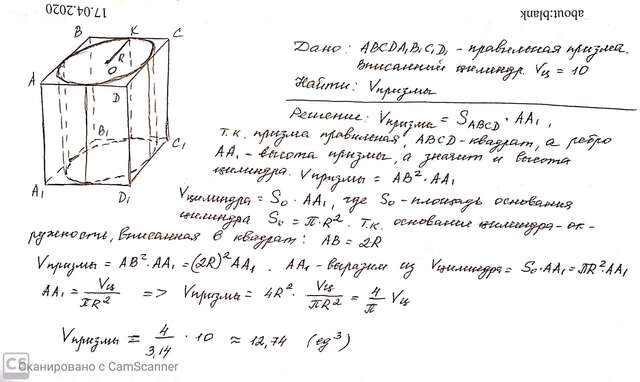 17.04.2020
about:blank
B K C
R
O
A D
B₁ C₁
A₁ D₁
Дано: ABCDA₁B₁C₁D₁ - правильная призма.
Вписанный цилиндр. Vц = 10
Найти: Vпризмы
Решение: Vпризмы = S_ABCD · AA₁,
т.к. призма правильная, ABCD-квадрат, а ребро
AA₁ - высота призмы, а значит и высота
цилиндра. Vпризмы = AB² · AA₁
Vцилиндра = S₀ · AA₁, где S₀ - площадь основания
цилиндра S₀ = π·R². Т.к. основание цилиндра-ок-
ружность, вписанная в квадрат: AB = 2R
Vпризмы = AB²·AA₁ = (2R)²AA₁. AA₁ - выразим из Vцилиндра = S₀·AA₁ = πR²·AA₁
AA₁ = Vц/πR² => Vпризмы = 4R² · Vц/πR² = 4/π Vц
Vпризмы = 4/3,14 · 10 ≈ 12,74 (ед³)
CS Сканировано с CamScanner